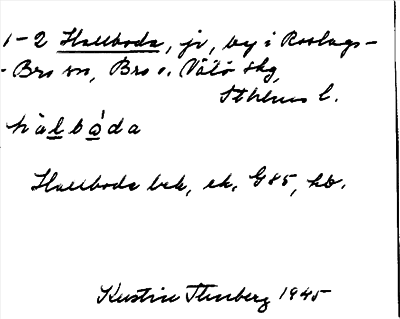 1-2 Hallboda, jr, by i Roslags-
-Bro sn, Bro o. Vätö skg,
Sthlms l.
hàlbòda
Hallboda bek, ek, G85, kb.
Kerstin Stenberg 1945